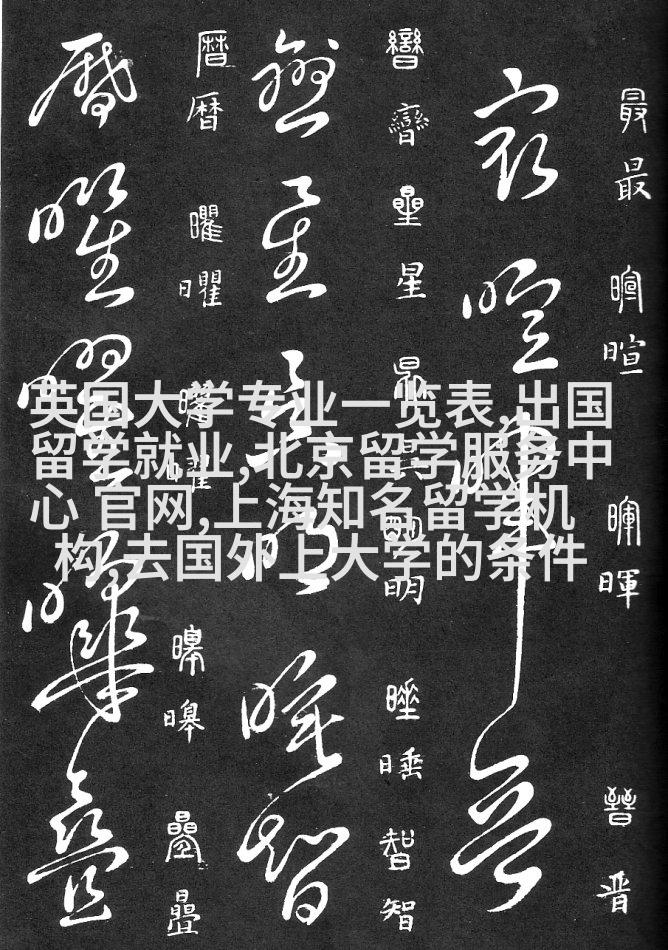 英国大学专业一览表,出国
留学就业,北京留学服务中
心 官网,上海知名留学机
构,去国外上大学的条件
最最暄暄暉暉晉晉
最暄暉晉
星星明明睡睡智智
星明睡智
曆曆曜曜
曆曜